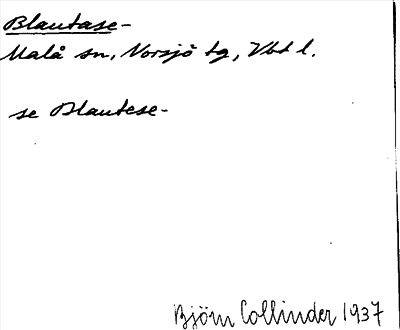 Blautase-
Malå sn, Norsjö tg, Vbt l.
se Blautese-
Björn Collinder 1937